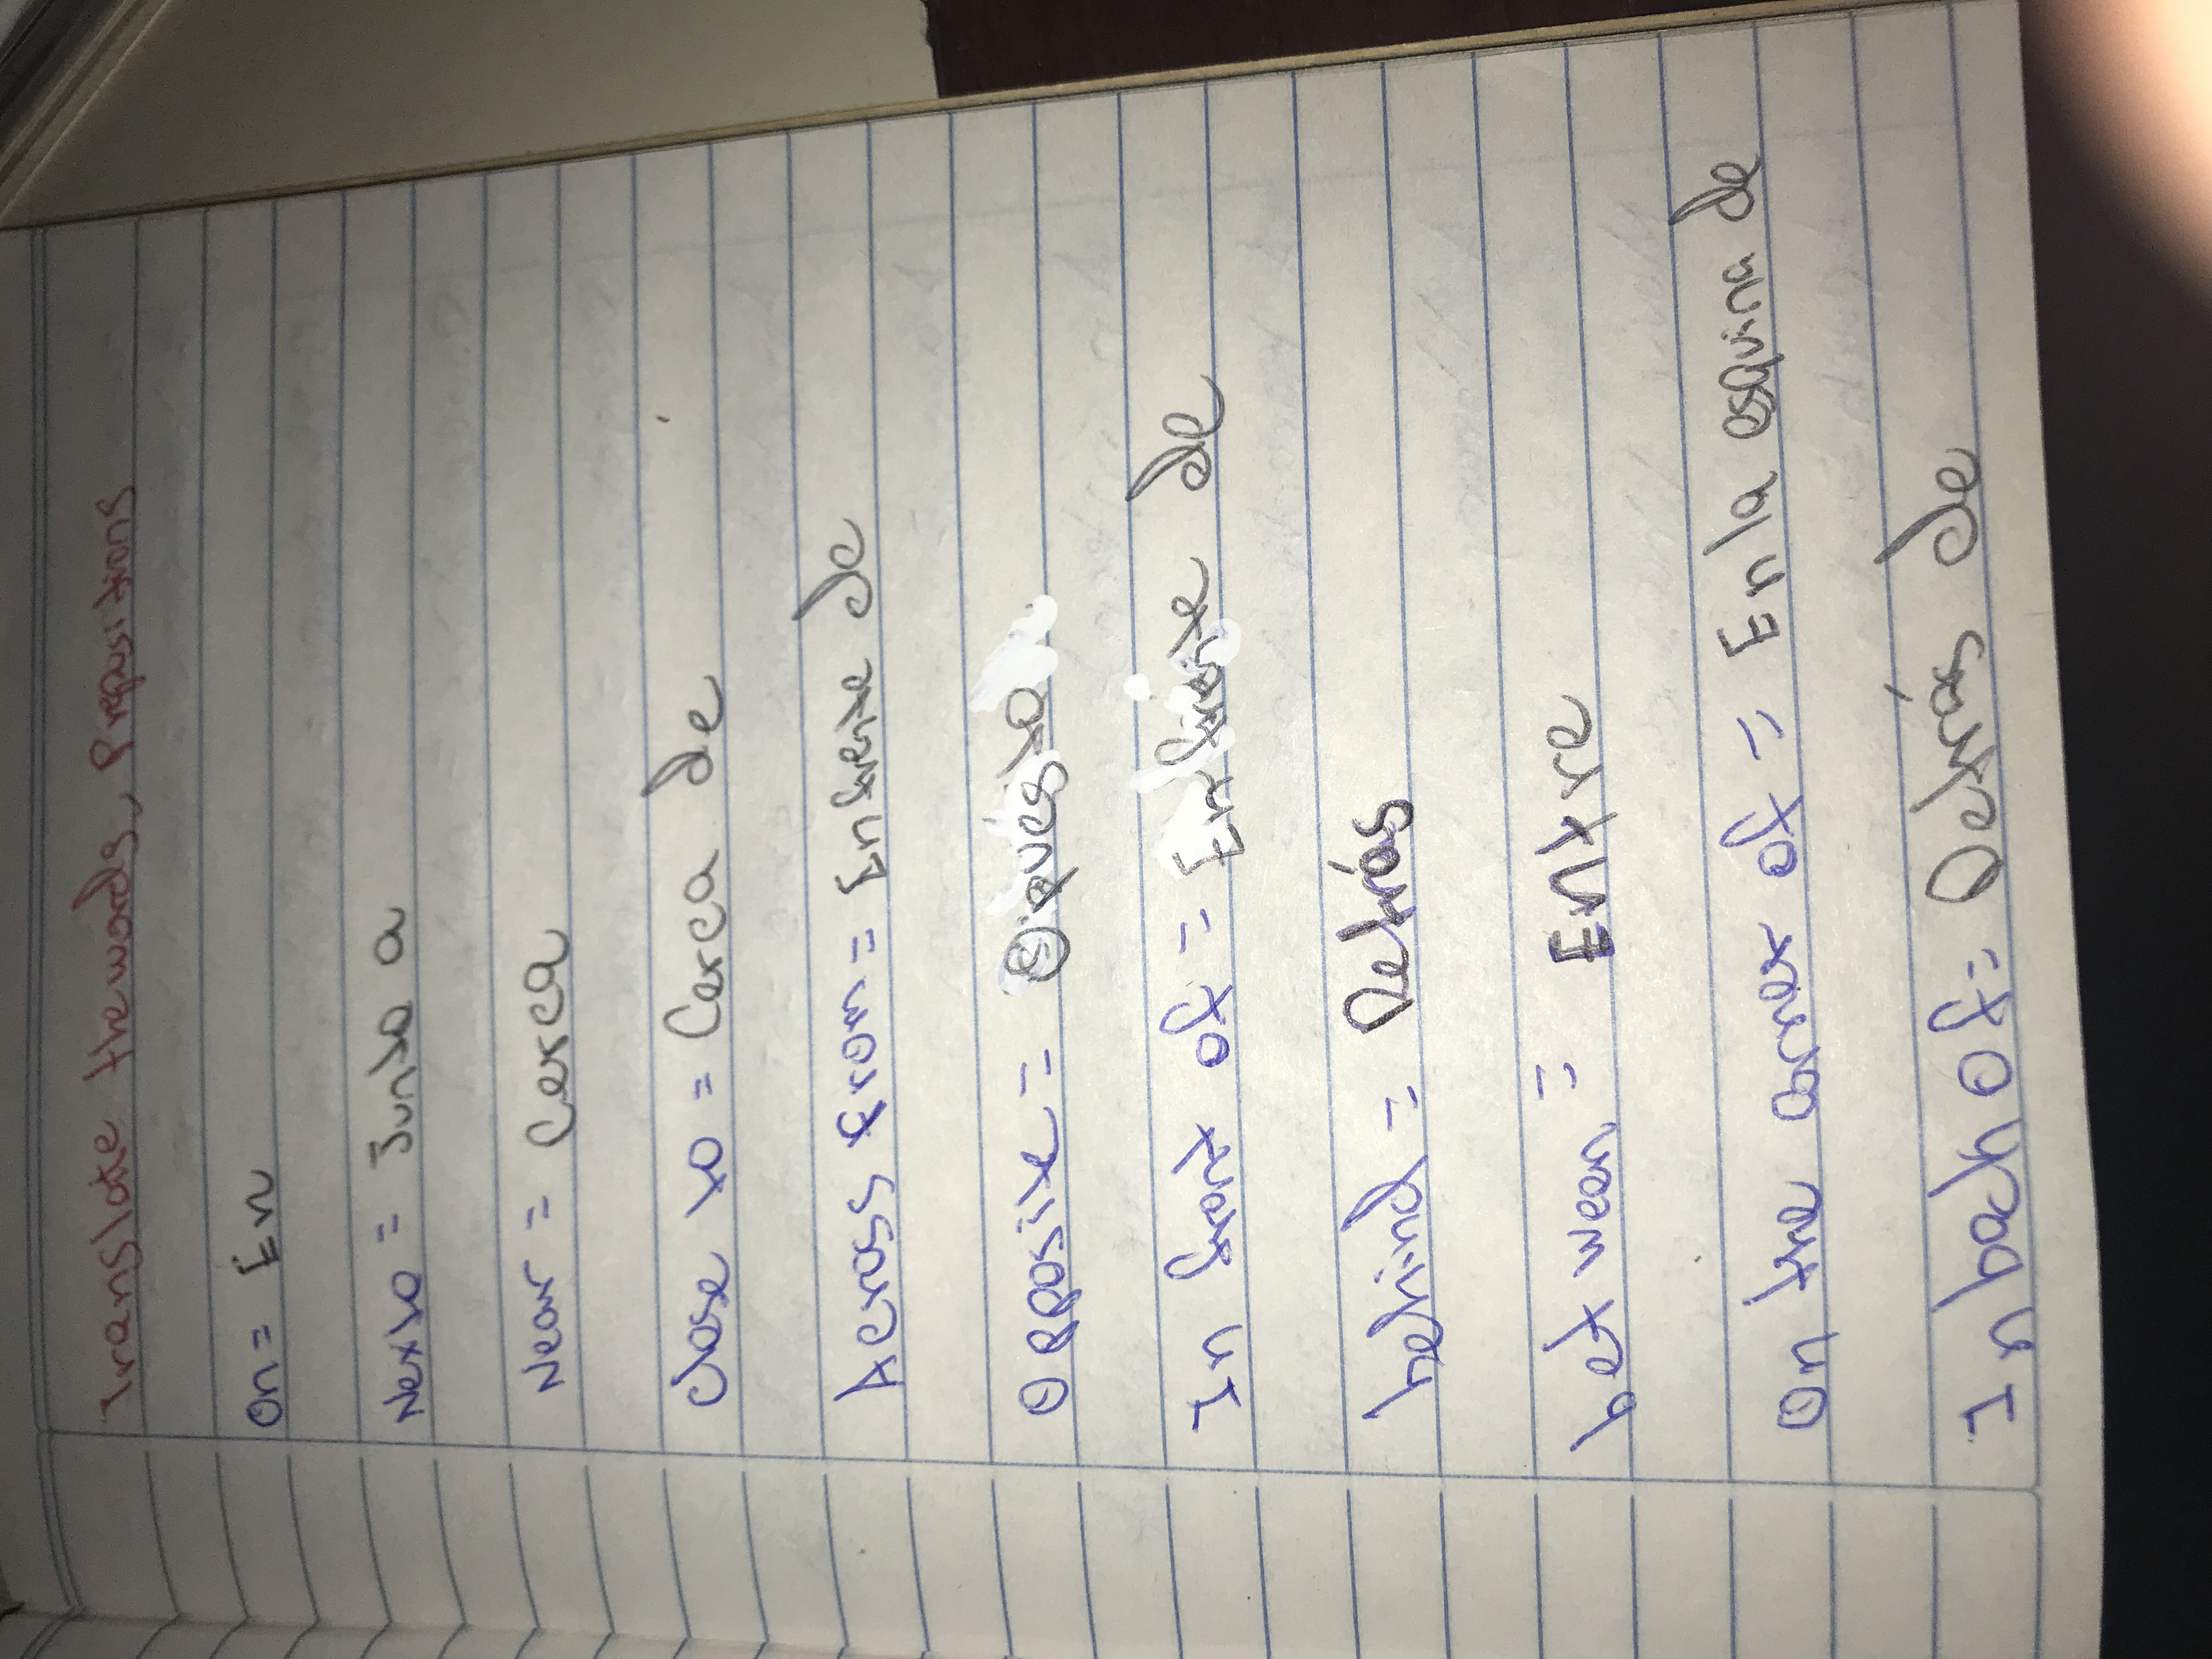 Translate the words, Prepositions
On = En
Next to = Junto a
Near = Cerca
Close to = Cerca de
Across from = Enfrente de
Opposite = Opuesto
In front of = Enfrente de
behind = Detrás
between = Entre
On the corner of = En la esquina de
In bach of = Detrás de